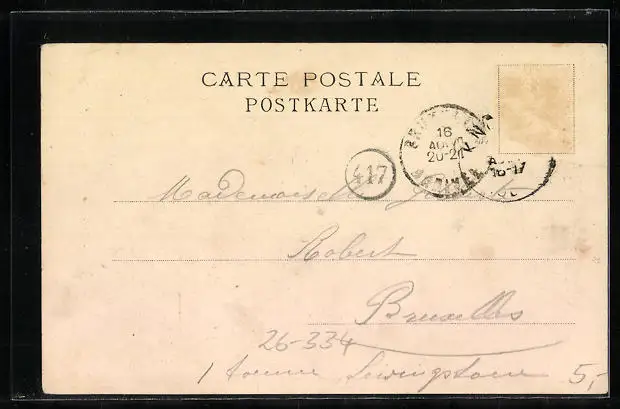 CARTE POSTALE
POSTKARTE
BRUXELLES
16
AOUT
20-21
ARRIVEE
16-17
417
Mademoiselle
Robert
Bruxelles
26-334
1 Avenue Livingstone 5,-